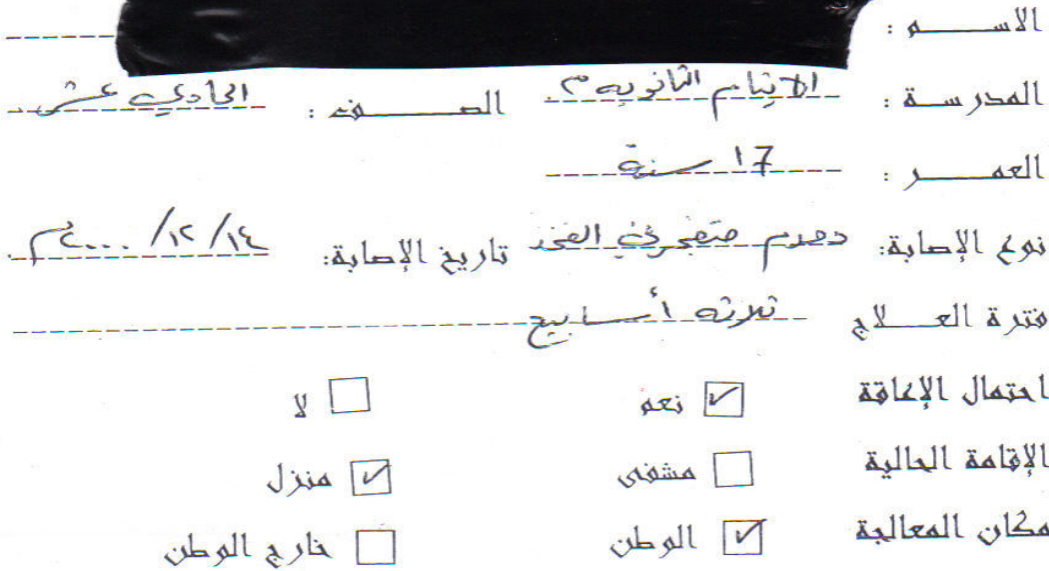 الاسم :
المدرسة : الايتام الثانويه م. الصف : الحادي عشر
العمر : 17 سنة
نوع الإصابة: دمدم متفجر في الفخذ تاريخ الإصابة: ١٤/ ١٢/ ٢٠٠٠م
فترة العلاج ثلاثه أسابيع
احتمال الإعاقة ☑ نعم ☐ لا
الإقامة الحالية ☐ مشفى ☑ منزل
مكان المعالجة ☑ الوطن ☐ خارج الوطن